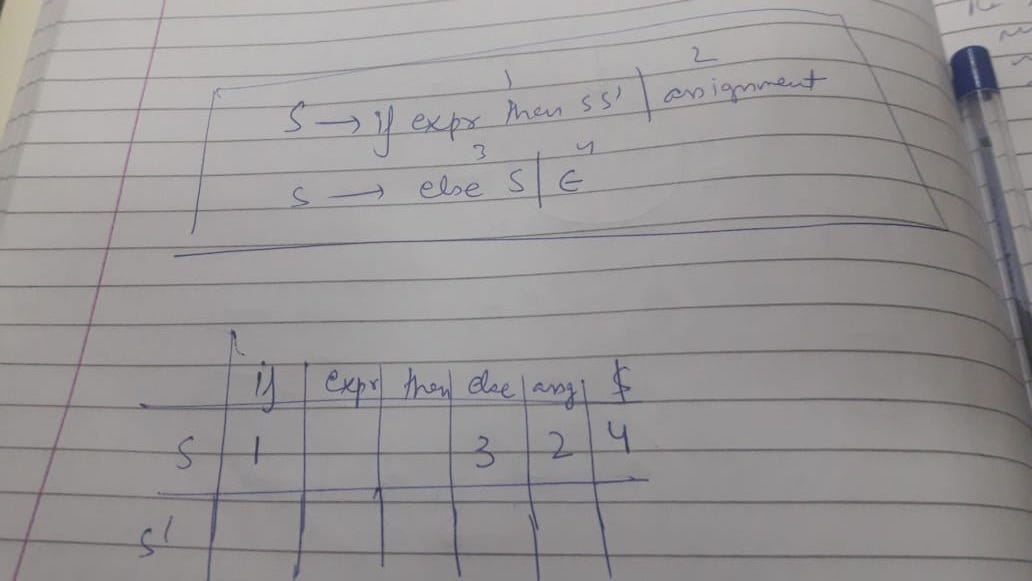 1 2
S → if expr then SS' | assignment
3 4
S → else S | ∈
if expr then else assg $
S 1 3 2 4
S'